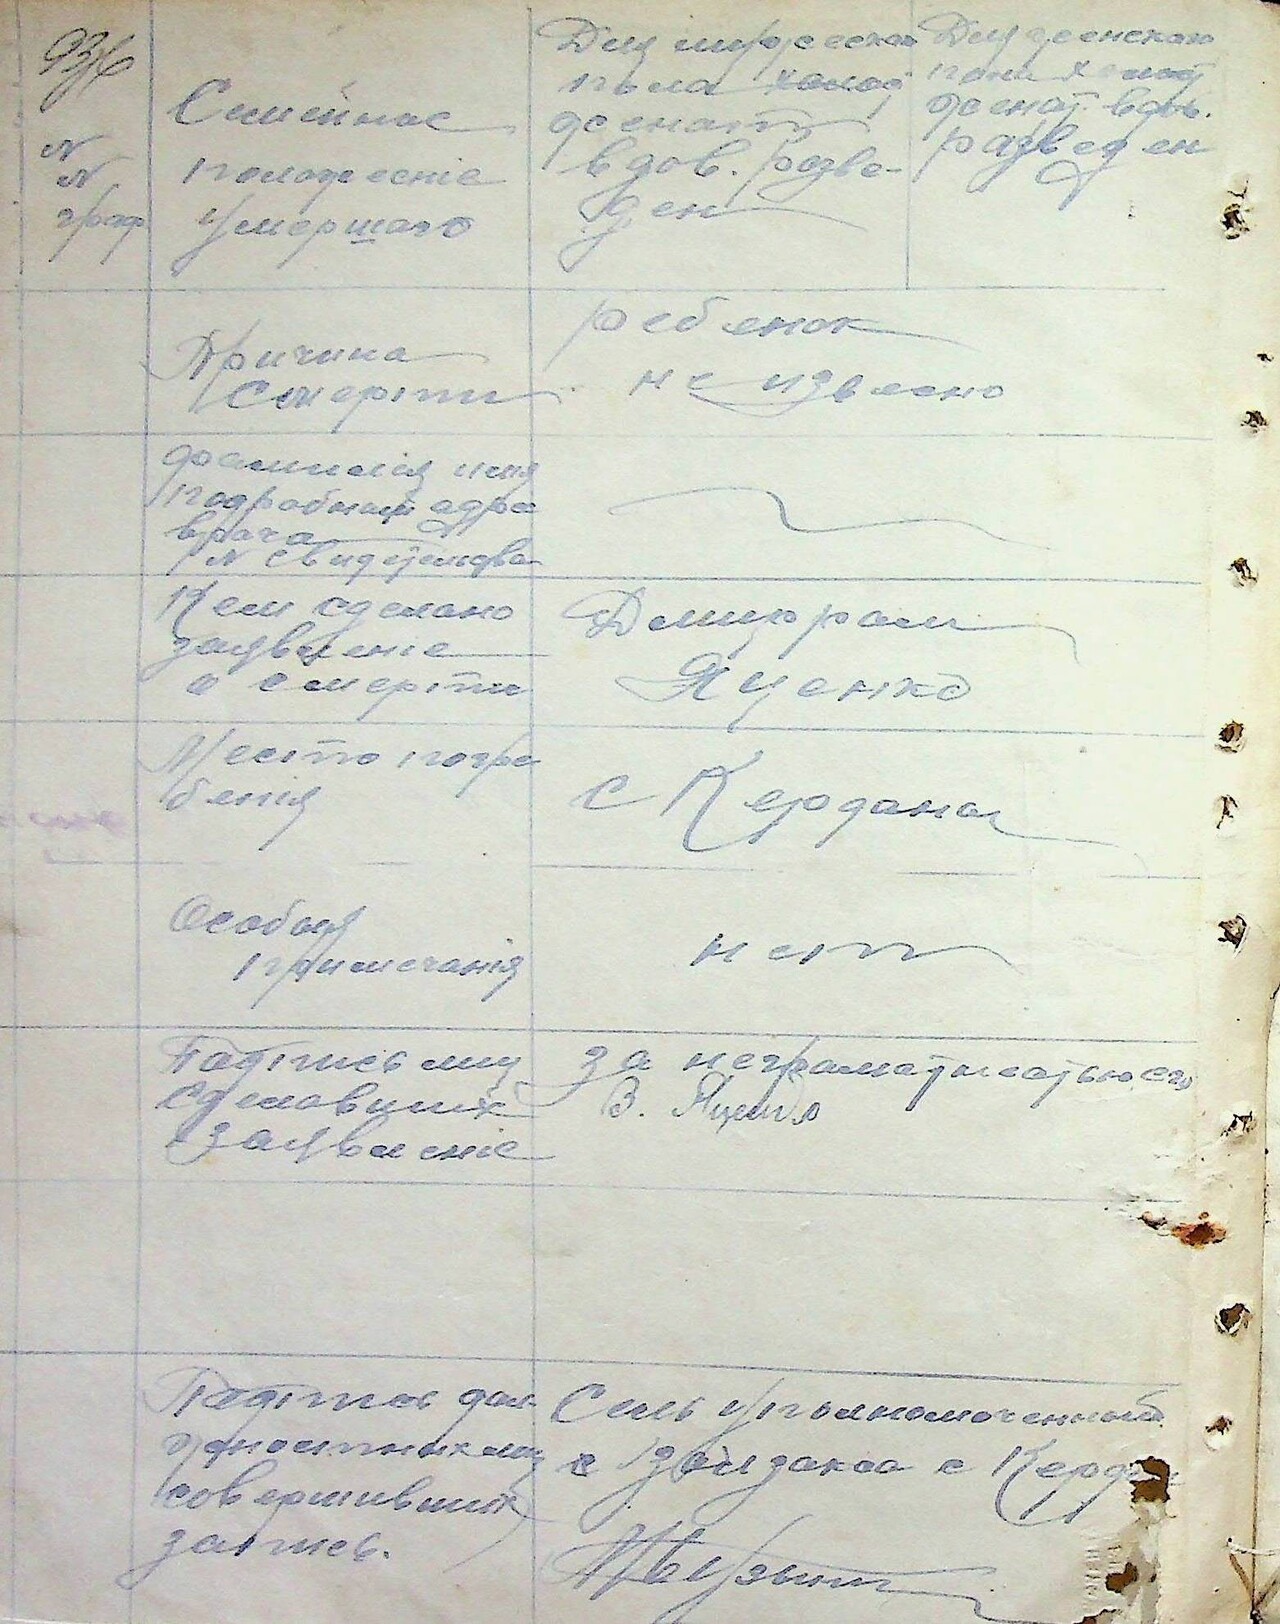 Семейное
положение
умершаго
Для мужескои
пола холост
женат
вдов. разве-
ден
Для женскои
пола холост
женат вдов.
разведен
N
N
граф
ребенок
Причина
Смерти
не извесно
фамилія имя
подробный адрес
врача
N свидетельства
Кем сделано
заявленіе
о смерти
Яценко
Место погре
бенія
с Кердана
Особыя
примечанія
нет
Падпись лиц
сделавших
заявленіе
за неграматностью его
З. Яценко
Падпись дол
жностных лиц
совершивших
запись.
Сель уполномоченный
с Кердан